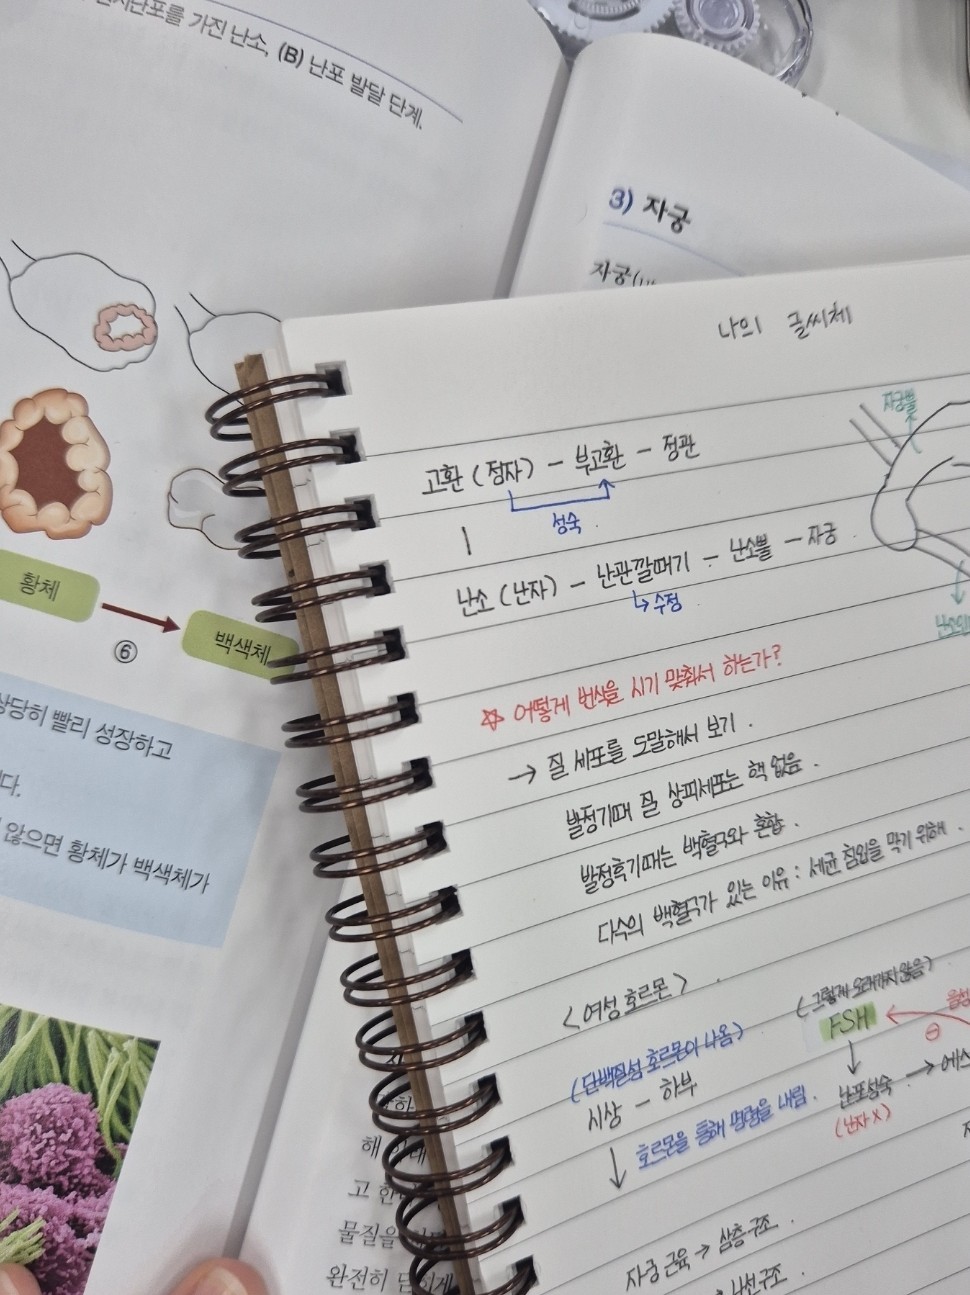 가진 난소, (B) 난포 발달 단계.
황체
백색체
⑥
상당히 빨리 성장하고
다.
않으면 황체가 백색체가
3) 자궁
자궁
나의 글씨체
자궁뿔
고환 (정자) - 부고환 - 정관
성숙
난소 (난자) - 난관깔때기 - 난소뿔 - 자궁
↳ 수정
☆ 어떻게 번식을 시기 맞춰서 하는가?
→ 질 세포를 도말해서 보기.
발정기때 질 상피세포는 핵 없음.
발정후기때는 백혈구와 혼합.
다수의 백혈구가 있는 이유 : 세균 침입을 막기 위해.
<여성 호르몬>
(그렇게 오래가지 않음)
FSH
⊖
(단백질성 호르몬이 나옴)
시상 - 하부
↓ 호르몬을 통해 명령을 내림.
↓
난포성숙 →
(난자 X)
자궁 근육 → 삼층구조.
→ 나선구조.
해
고 한
물질을
완전히